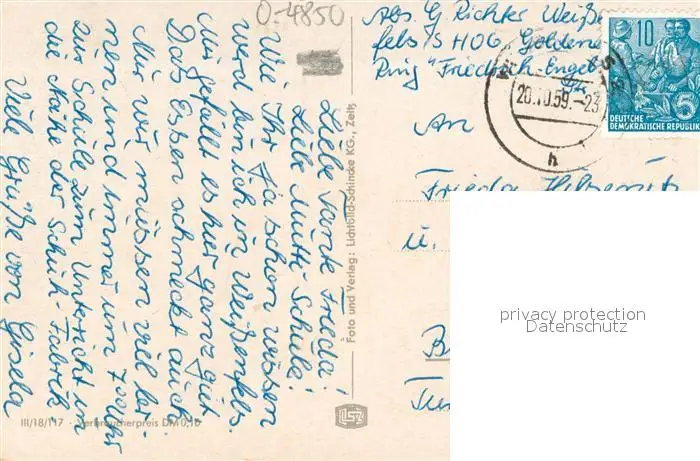 0-4850
Abs. G. Richter Weißen-
fels/S HOG „Goldener
Ring" Friedrich Engels
Str
10
5
DEUTSCHE
DEMOKRATISCHE REPUBLIK
20.10.59.-23
h
An
Frieda
u.
Liebe Tante Frieda!
Liebe Mutti Schule!
Wie Ihr ja schon wissen
werd bin ich in Weißenfels.
Mir gefällt es hier ganz gut
Das Essen schmeckt auch.
Nur wir müssen viel ler-
nen und immer um 7 Uhr
zur Schule zum Unterricht in
die Nähe der Schuh-Fabrik
Viele Grüße von Gisela
Foto und Verlag: Lichtbild-Schincke KG., Zeitz
LSZ
III/18/117 - Verbraucherpreis DM 0,10
privacy protection
Datenschutz